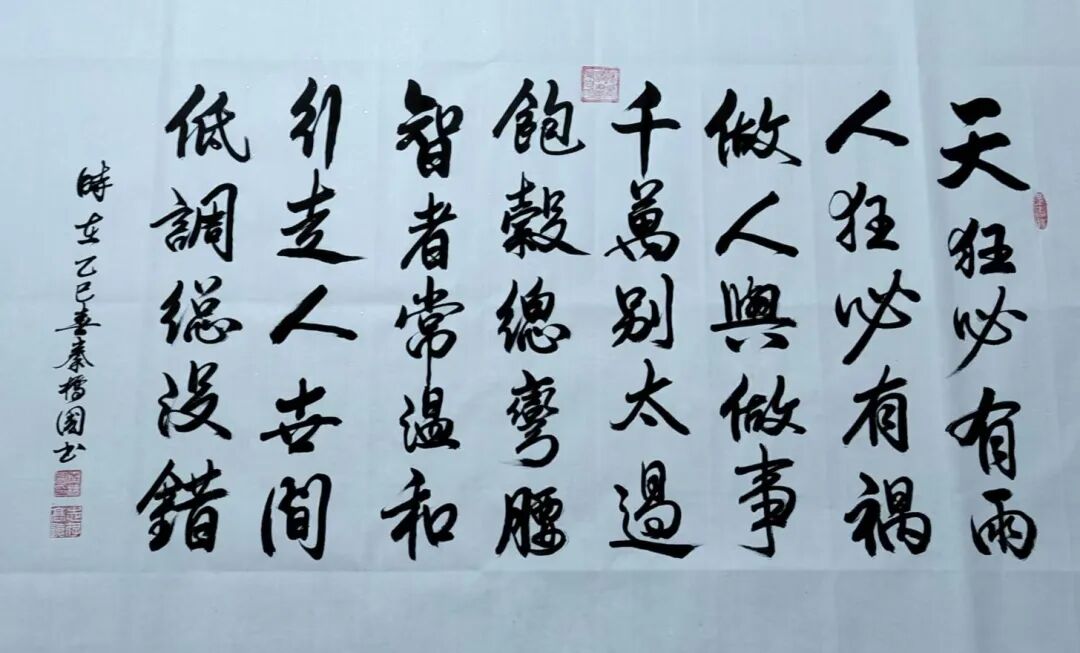 天狂必有雨
人狂必有禍
做人與做事
千萬别太過
飽穀總彎腰
智者常温和
行走人世间
低調總没錯
時在乙巳春秦橋國书